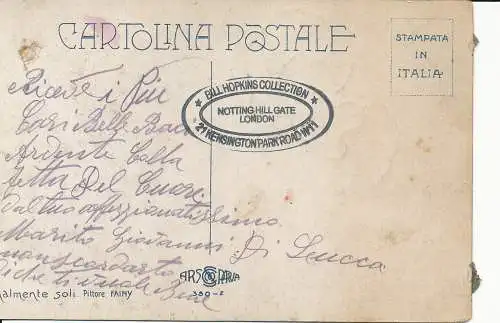 CARTOLINA POSTALE
STAMPATA
IN
ITALIA
BILL HOPKINS COLLECTION
NOTTING HILL GATE
LONDON
21 KENSINGTON PARK ROAD W11
Ricevi i Più
Cari Belle Baci
Ardente Colla
fetta Del Cuore
Dal tuo affezionatissimo
Marito Giovanni Di Lucca
ti vuole Bene
ARS PARVA
380-2
almente soli. Pittore FAINY